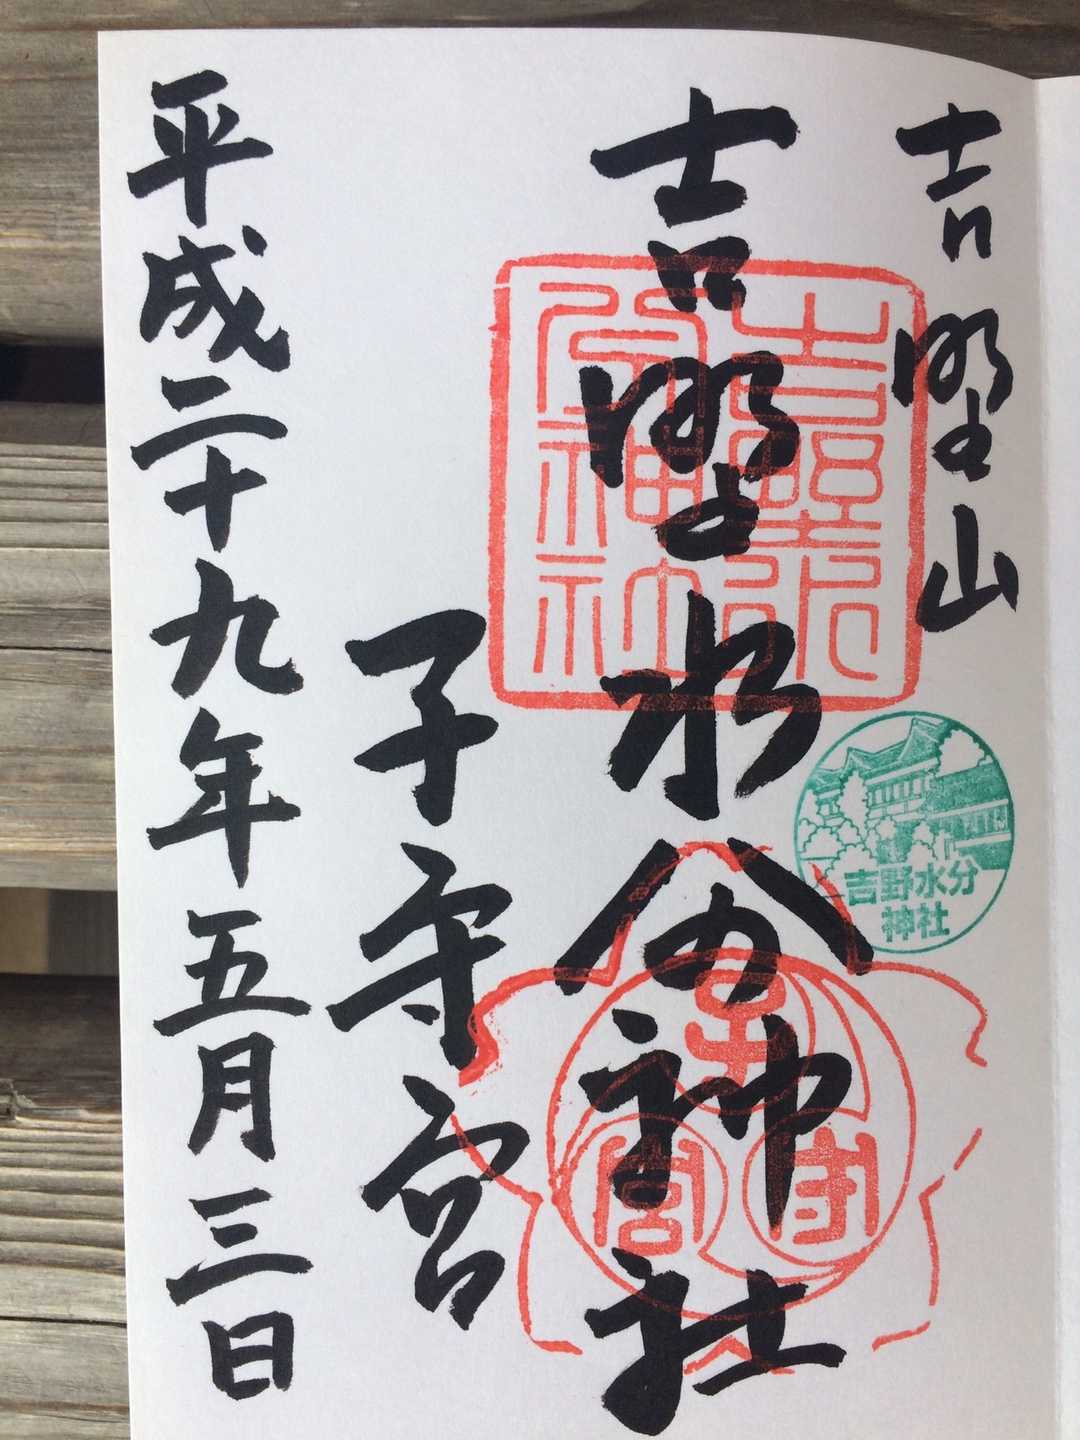 吉野山
吉野水分神社
子守宮
平成二十九年五月三日
吉野水分
神社
子
守
宮